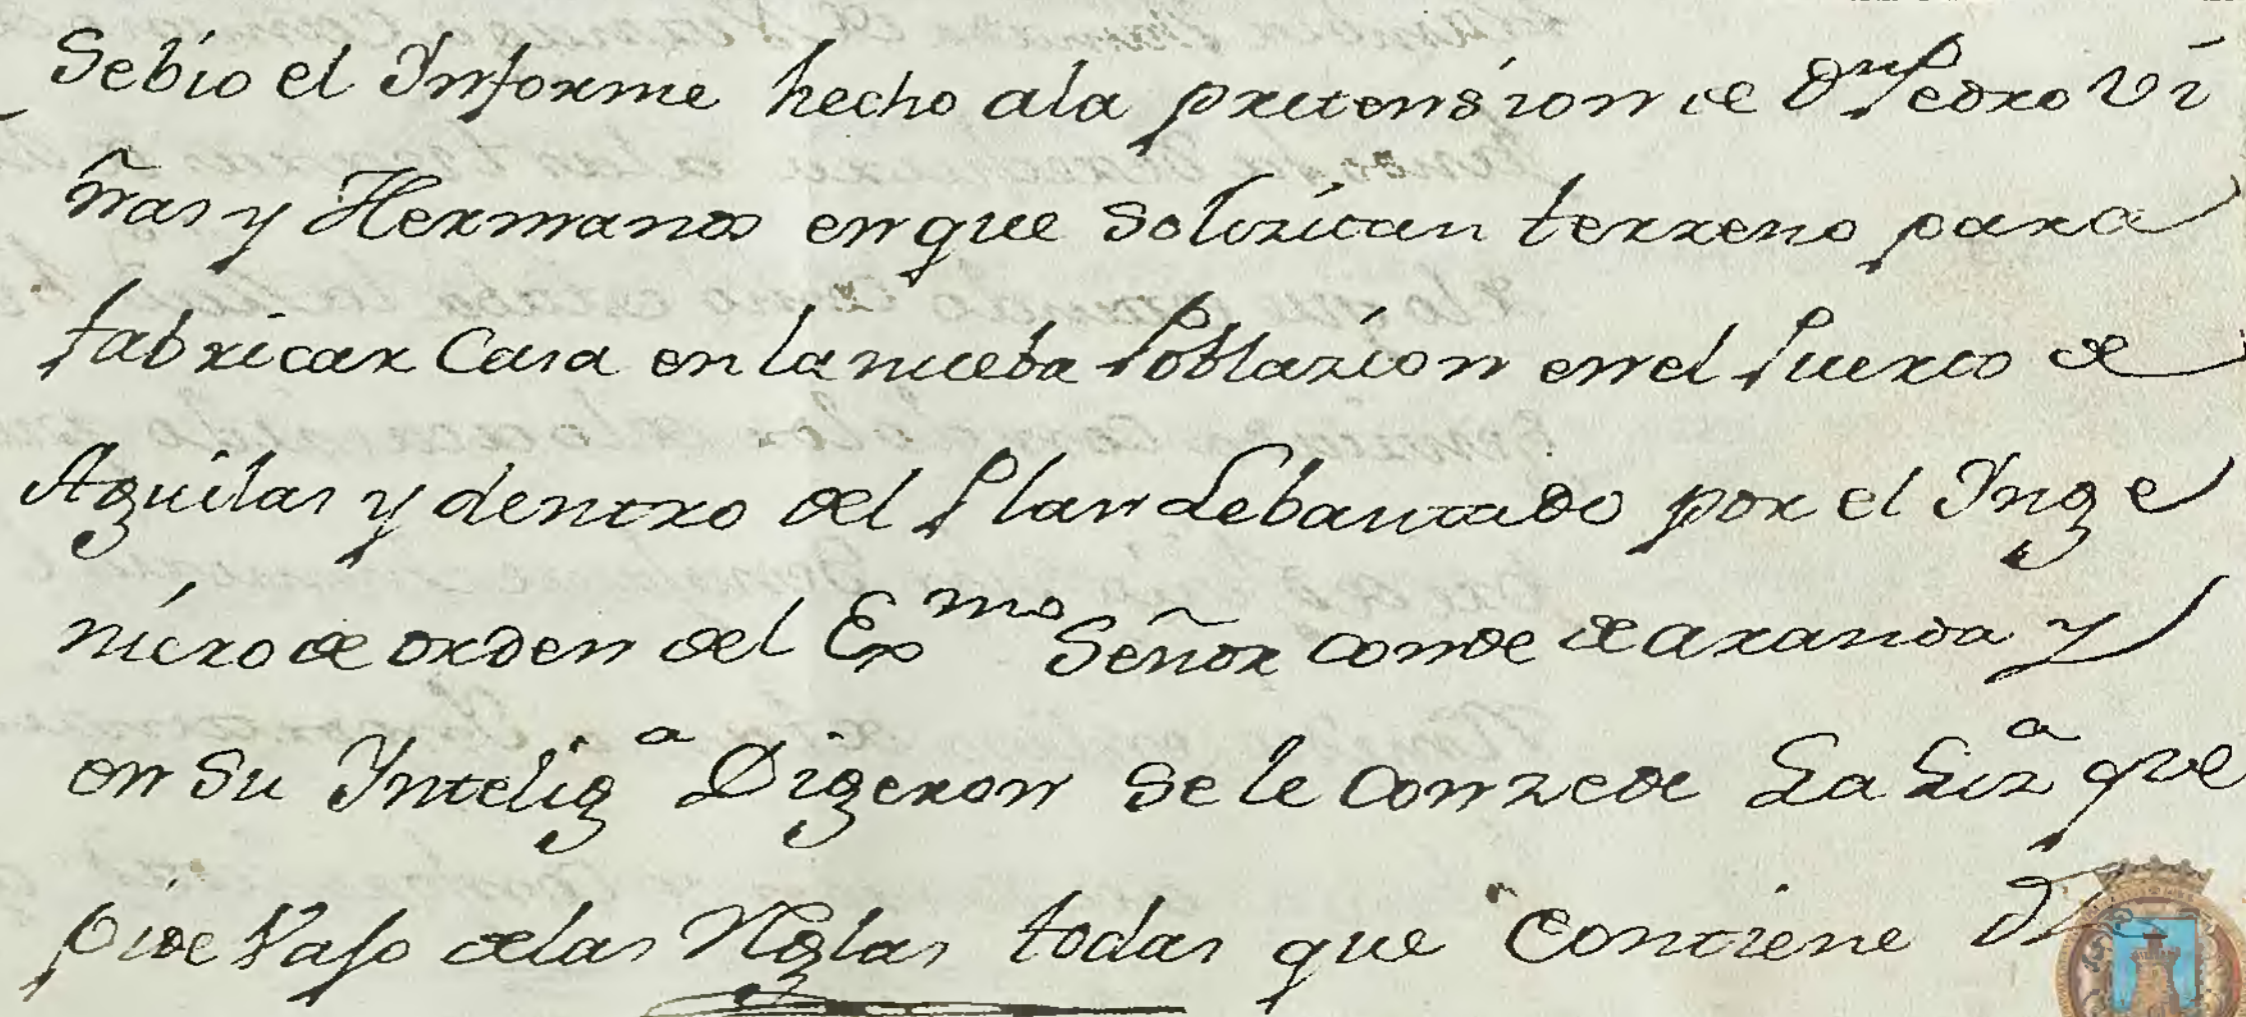 Sebio el Ynforme hecho ala pretension de Dn Pedro Vi
ñas y Hermanos en que solizitan terreno para
fabricar Casa en la nueba Poblazion en el Puerto de
Aguilas y dentro del Plan Lebantado por el Ynge
niero de orden del Exmo Señor Conde de Aranda y
en su Yntelig.a Digeron se le Conzede La Liz.a que
pide Vajo delas Reglas todas que Contiene